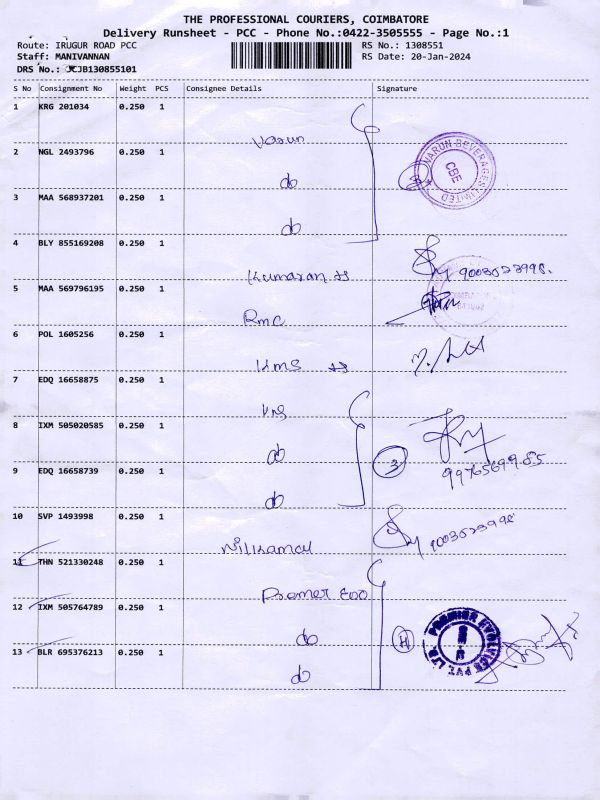 THE PROFESSIONAL COURIERS, COIMBATORE
Delivery Runsheet - PCC - Phone No.:0422-3505555 - Page No.:1
Route: IRUGUR ROAD PCC RS No.: 1308551
Staff: MANIVANNAN RS Date: 20-Jan-2024
DRS No.: JCJB130855101
S No Consignment No Weight PCS Consignee Details Signature
1 KRG 201034 0.250 1
Varun
2 NGL 2493796 0.250 1
do
VARUN BEVERAGES LIMITED
CBE
3 MAA 568937201 0.250 1
do
4 BLY 855169208 0.250 1
Kumaran
5 MAA 569796195 0.250 1
Rmc
6 POL 1605256 0.250 1
Kms
7 EDQ 16658875 0.250 1
8 IXM 505020585 0.250 1
do
3
9976569985
9 EDQ 16658739 0.250 1
do
10 SVP 1493998 0.250 1
11 THN 521330248 0.250 1
12 IXM 505764789 0.250 1
do
PREMIER EVOLVICS PVT. LTD.
13 BLR 695376213 0.250 1
do